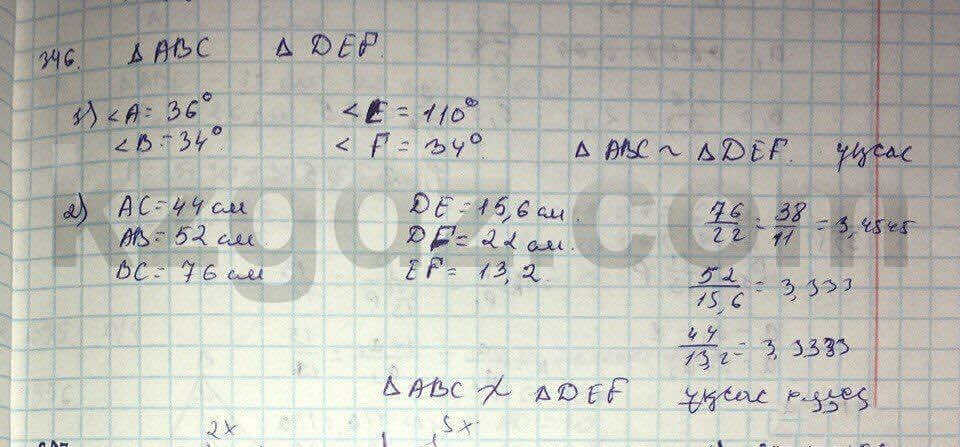 346. Δ ABC Δ DEF.
1) <A = 36° <E = 110°
<B = 34° < F = 34° Δ ABC ~ Δ DEF. ұқсас
2) AC = 44 см DE = 15,6 см. 76/22 = 38/11 = 3,4545
AB = 52 см DF = 22 см.
BC = 76 см EF = 13,2. 52/15,6 = 3,333
44/13,2 = 3,3333
Δ ABC ≁ Δ DEF ұқсас емес
2x 5x